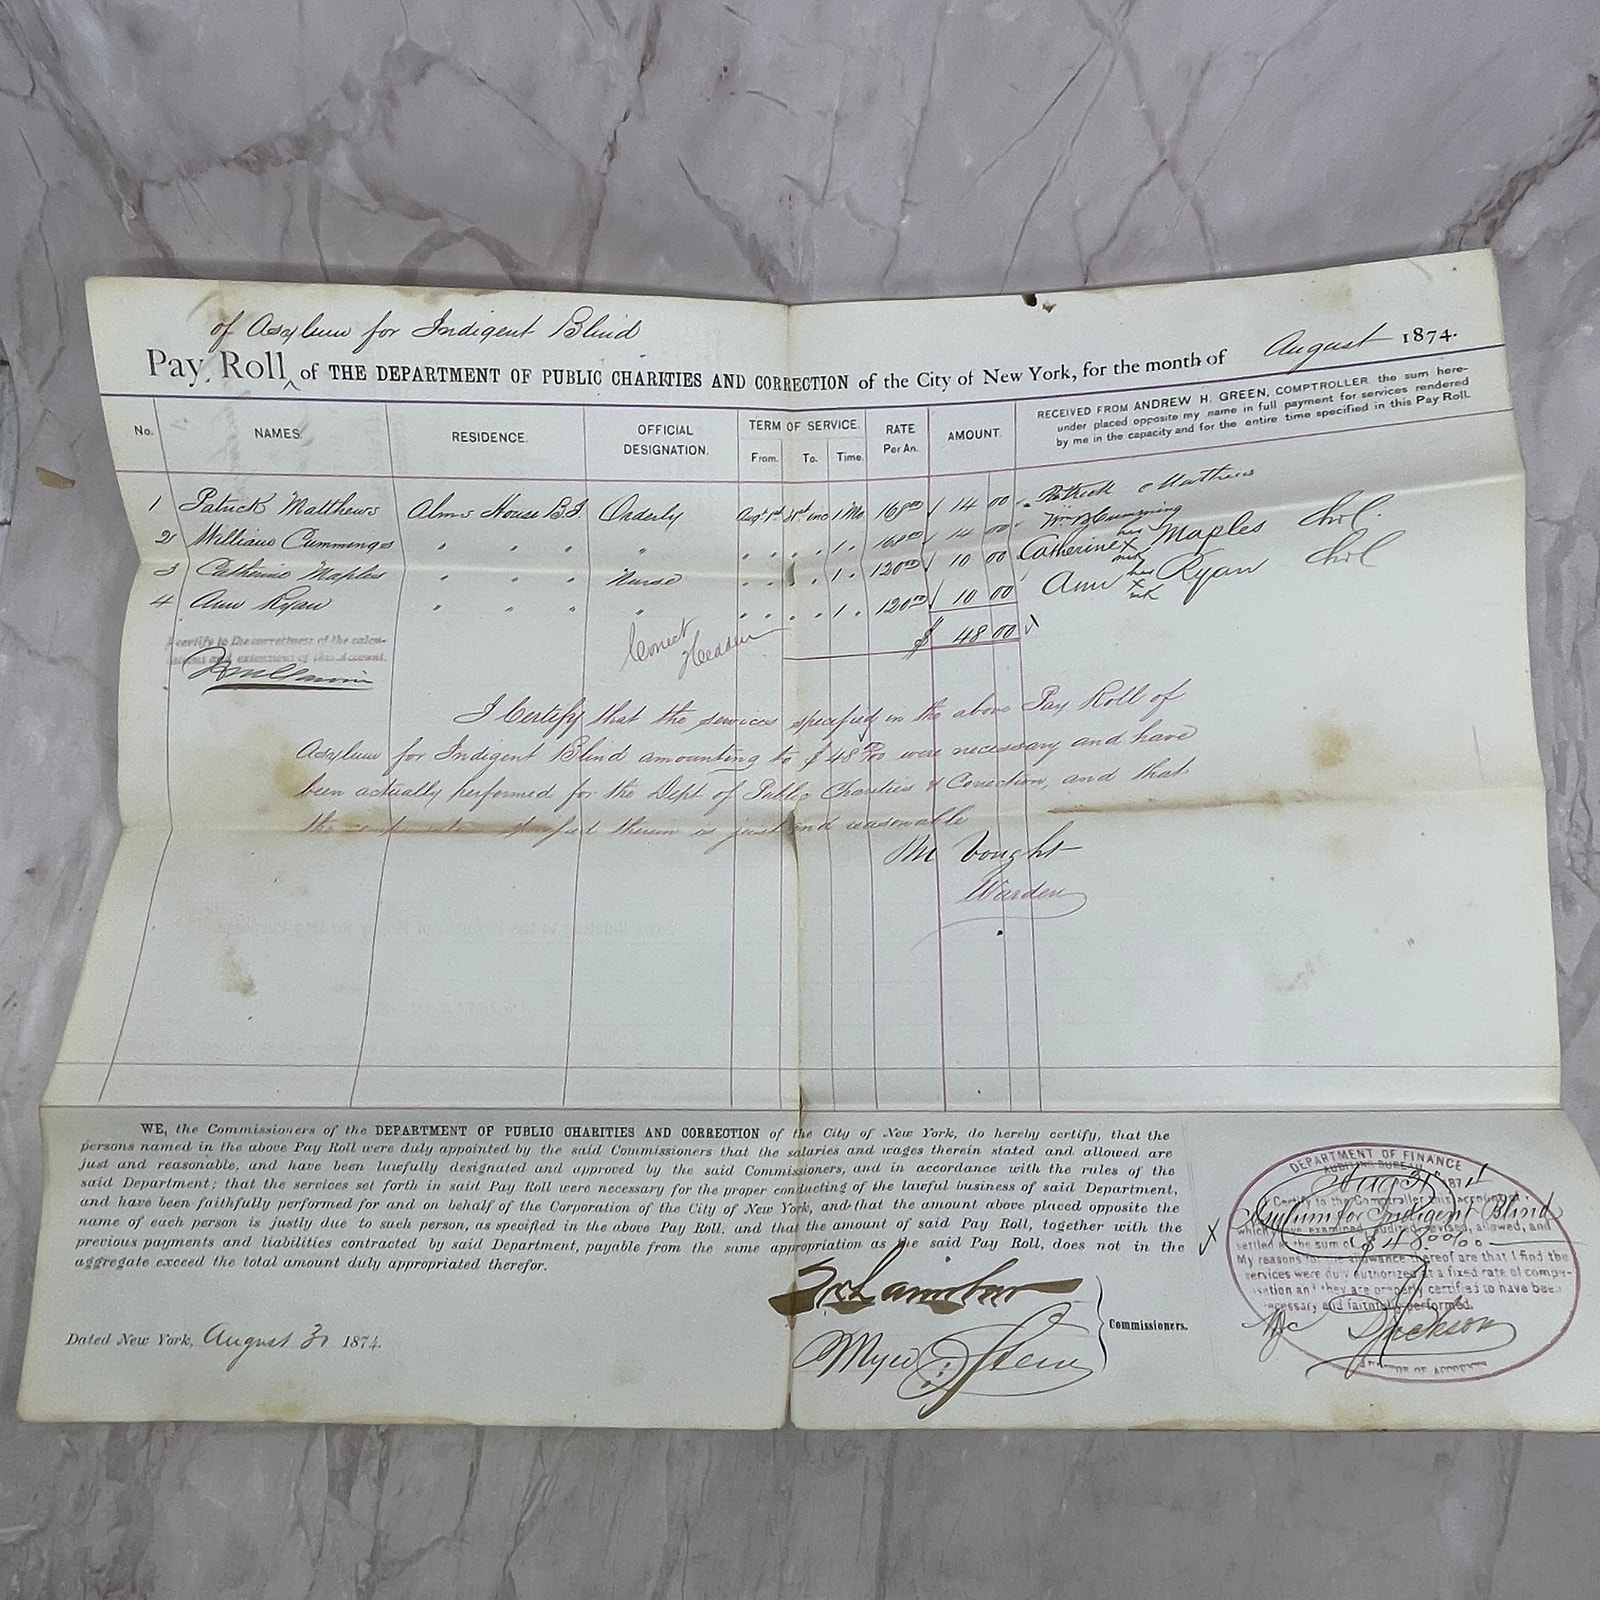 of Asylum for Indigent Blind
Pay Roll of THE DEPARTMENT OF PUBLIC CHARITIES AND CORRECTION of the City of New York, for the month of August 1874.
No. NAMES. RESIDENCE. OFFICIAL DESIGNATION. TERM OF SERVICE. From. To. Time. RATE Per An. AMOUNT.
RECEIVED FROM ANDREW H. GREEN, COMPTROLLER the sum here-
under placed opposite my name in full payment for services rendered
by me in the capacity and for the entire time specified in this Pay Roll.
1 Patrick Matthews Alms House B.I. Orderly Augt 1st 31st inc 1 Mo 168 00 14 00 Patrick Matthews
2 William Cummings " " " " " " " " 1 " 168 00 14 00 Wm Cumming
3 Catherine Maples " " " Nurse " " " " 1 " 120 00 10 00 Catherine her x mk Maples
4 Ann Ryan " " " " " " " " 1 " 120 00 10 00 Ann her x mk Ryan
$ 48 00
I certify to the correctness of the calcu-
lations and extensions of this Account.
Correct
I Certify that the services specified in the above Pay Roll of
Asylum for Indigent Blind amounting to $48 00/100 were necessary and have
been actually performed for the Dept of Public Charities & Correction, and that
the compensation specified therein is just and reasonable
M Vought
Warden
WE, the Commissioners of the DEPARTMENT OF PUBLIC CHARITIES AND CORRECTION of the City of New York, do hereby certify, that the
persons named in the above Pay Roll were duly appointed by the said Commissioners that the salaries and wages therein stated and allowed are
just and reasonable, and have been lawfully designated and approved by the said Commissioners, and in accordance with the rules of the
said Department; that the services set forth in said Pay Roll were necessary for the proper conducting of the lawful business of said Department,
and have been faithfully performed for and on behalf of the Corporation of the City of New York, and that the amount above placed opposite the
name of each person is justly due to such person, as specified in the above Pay Roll, and that the amount of said Pay Roll, together with the
previous payments and liabilities contracted by said Department, payable from the same appropriation as the said Pay Roll, does not in the
aggregate exceed the total amount duly appropriated therefor.
Dated New York, August 31 1874.
Myer Stern
Commissioners.
DEPARTMENT OF FINANCE
AUDITING BUREAU
Aug 31 1874
I Certify to the Comptroller this account
Asylum for Indigent Blind
which I have examined, audited, revised, allowed, and
settled at the sum of $48 00/100
My reasons for the allowance thereof are that I find the
services were duly authorized at a fixed rate of compen-
sation and they are properly certified to have been
necessary and faithfully performed.
D Jackson
AUDITOR OF ACCOUNTS